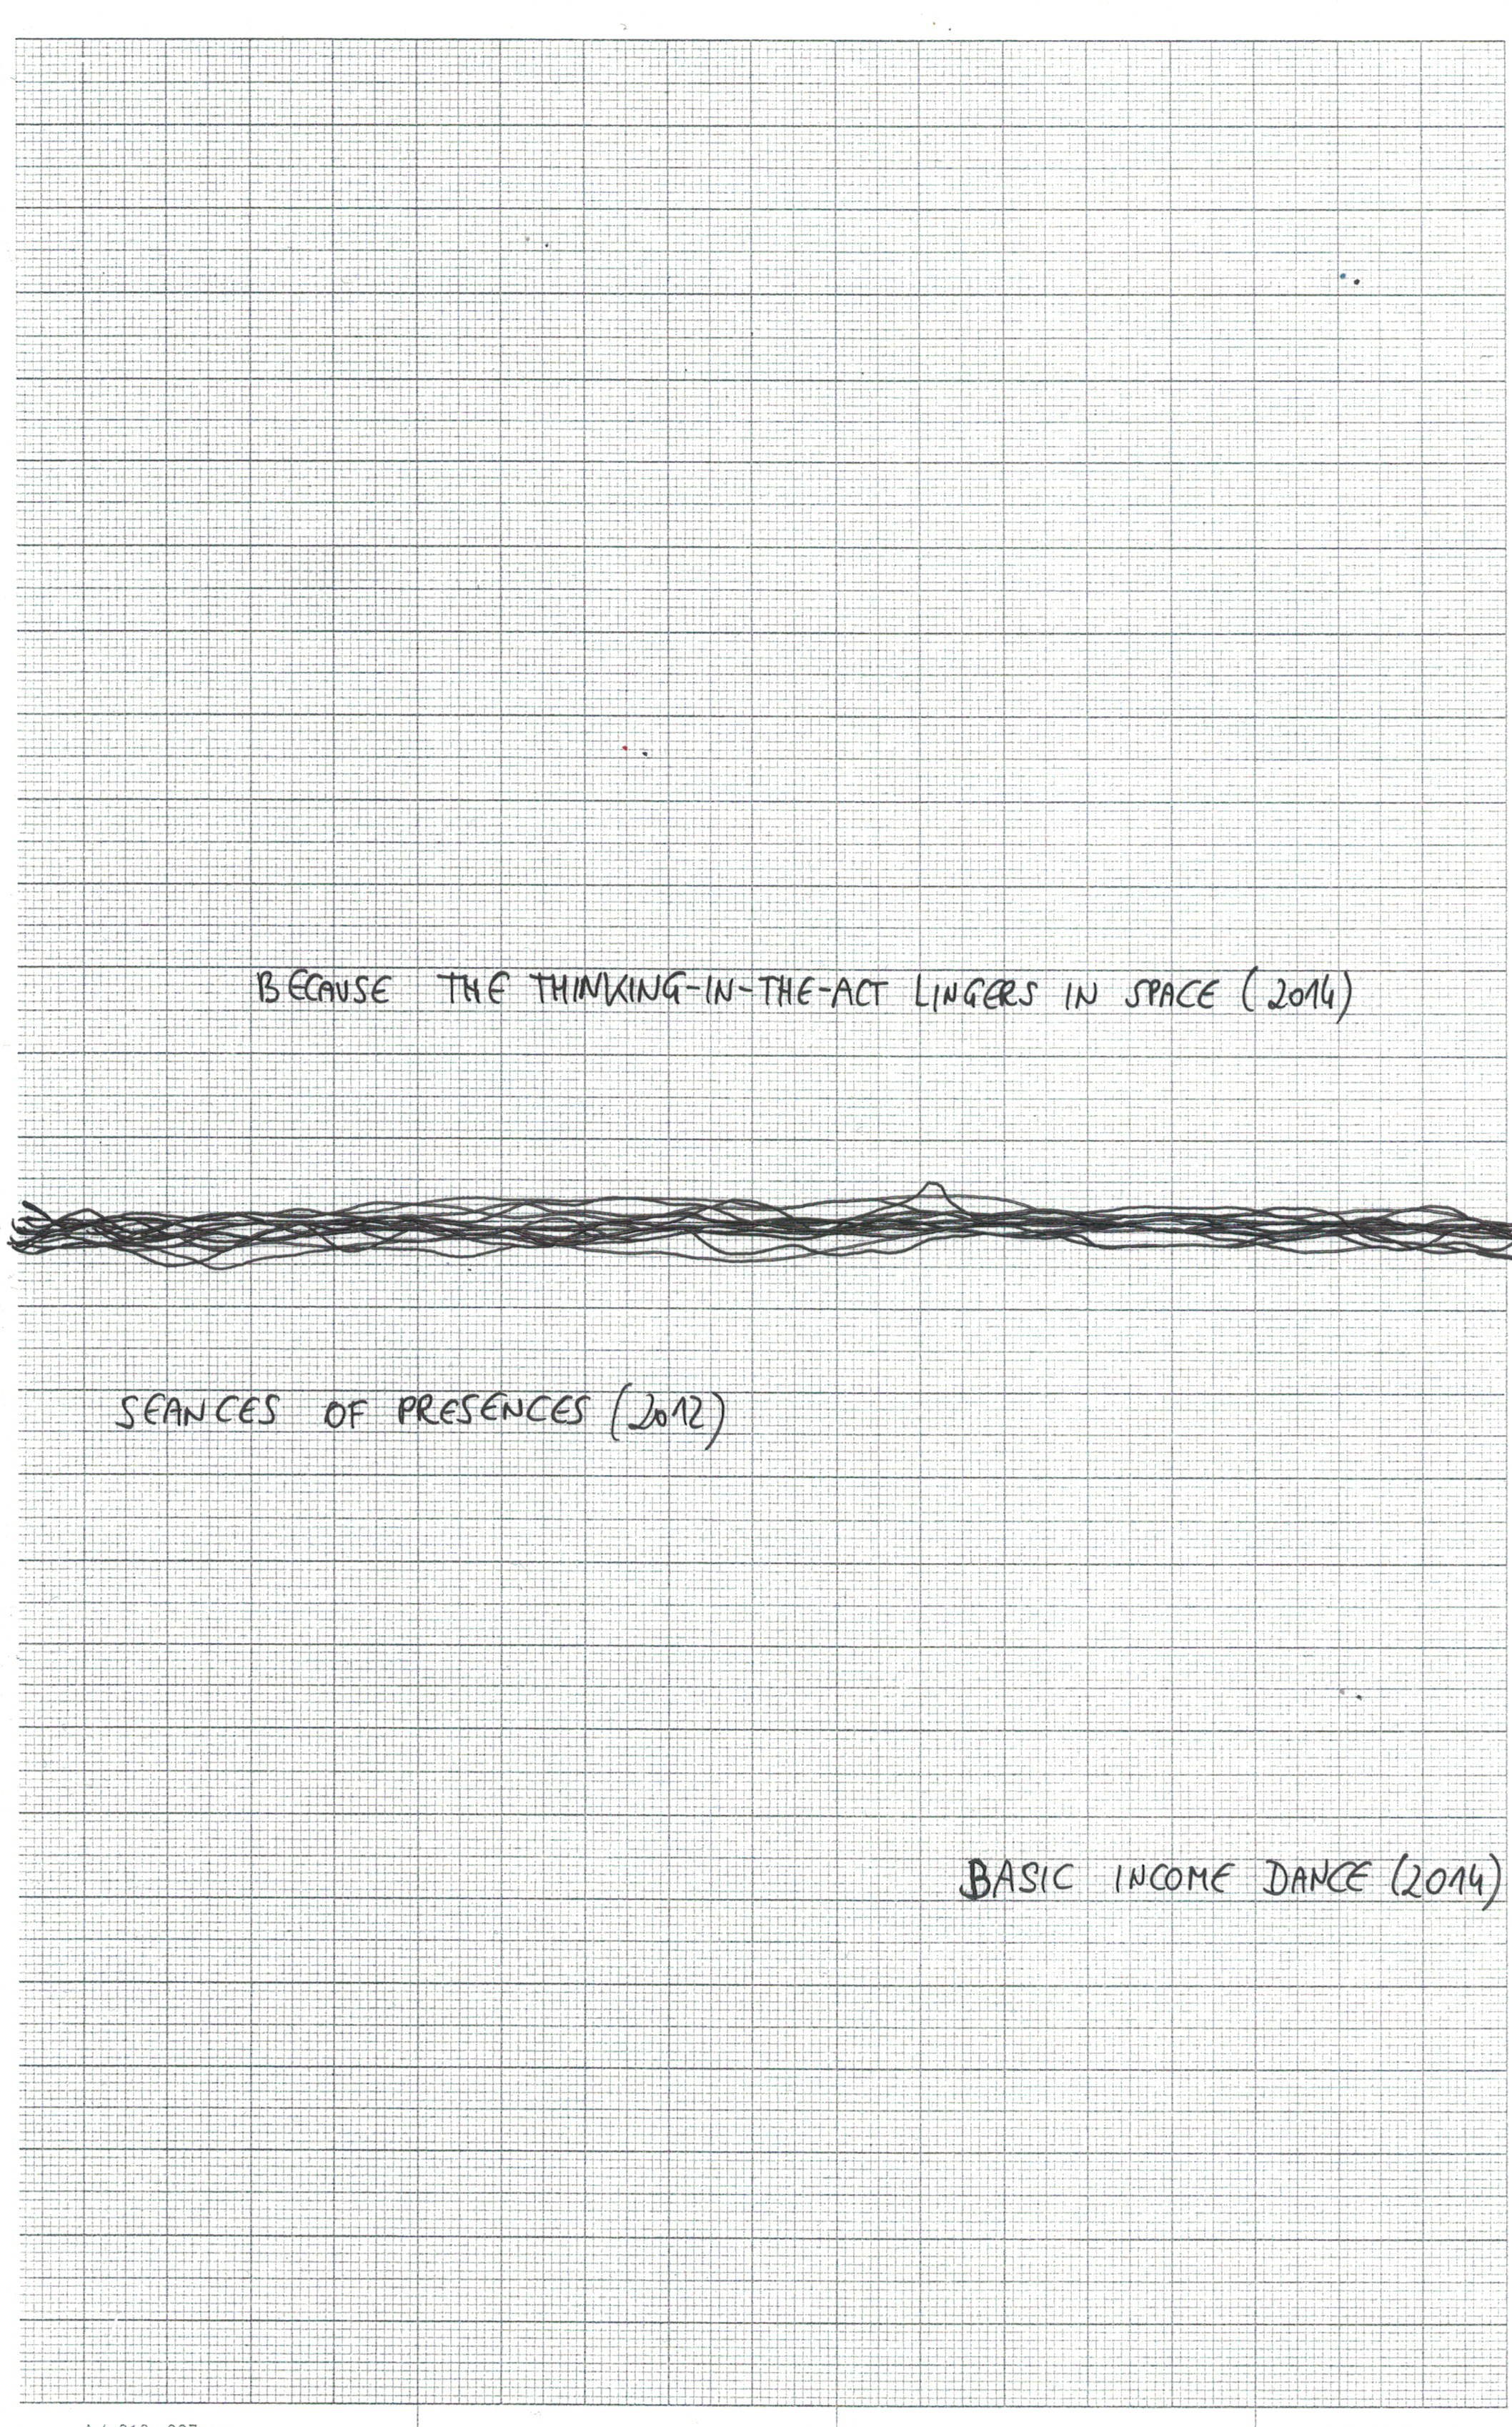 BECAUSE THE THINKING-IN-THE-ACT LINGERS IN SPACE (2014)
SEANCES OF PRESENCES (2012)
BASIC INCOME DANCE (2014)